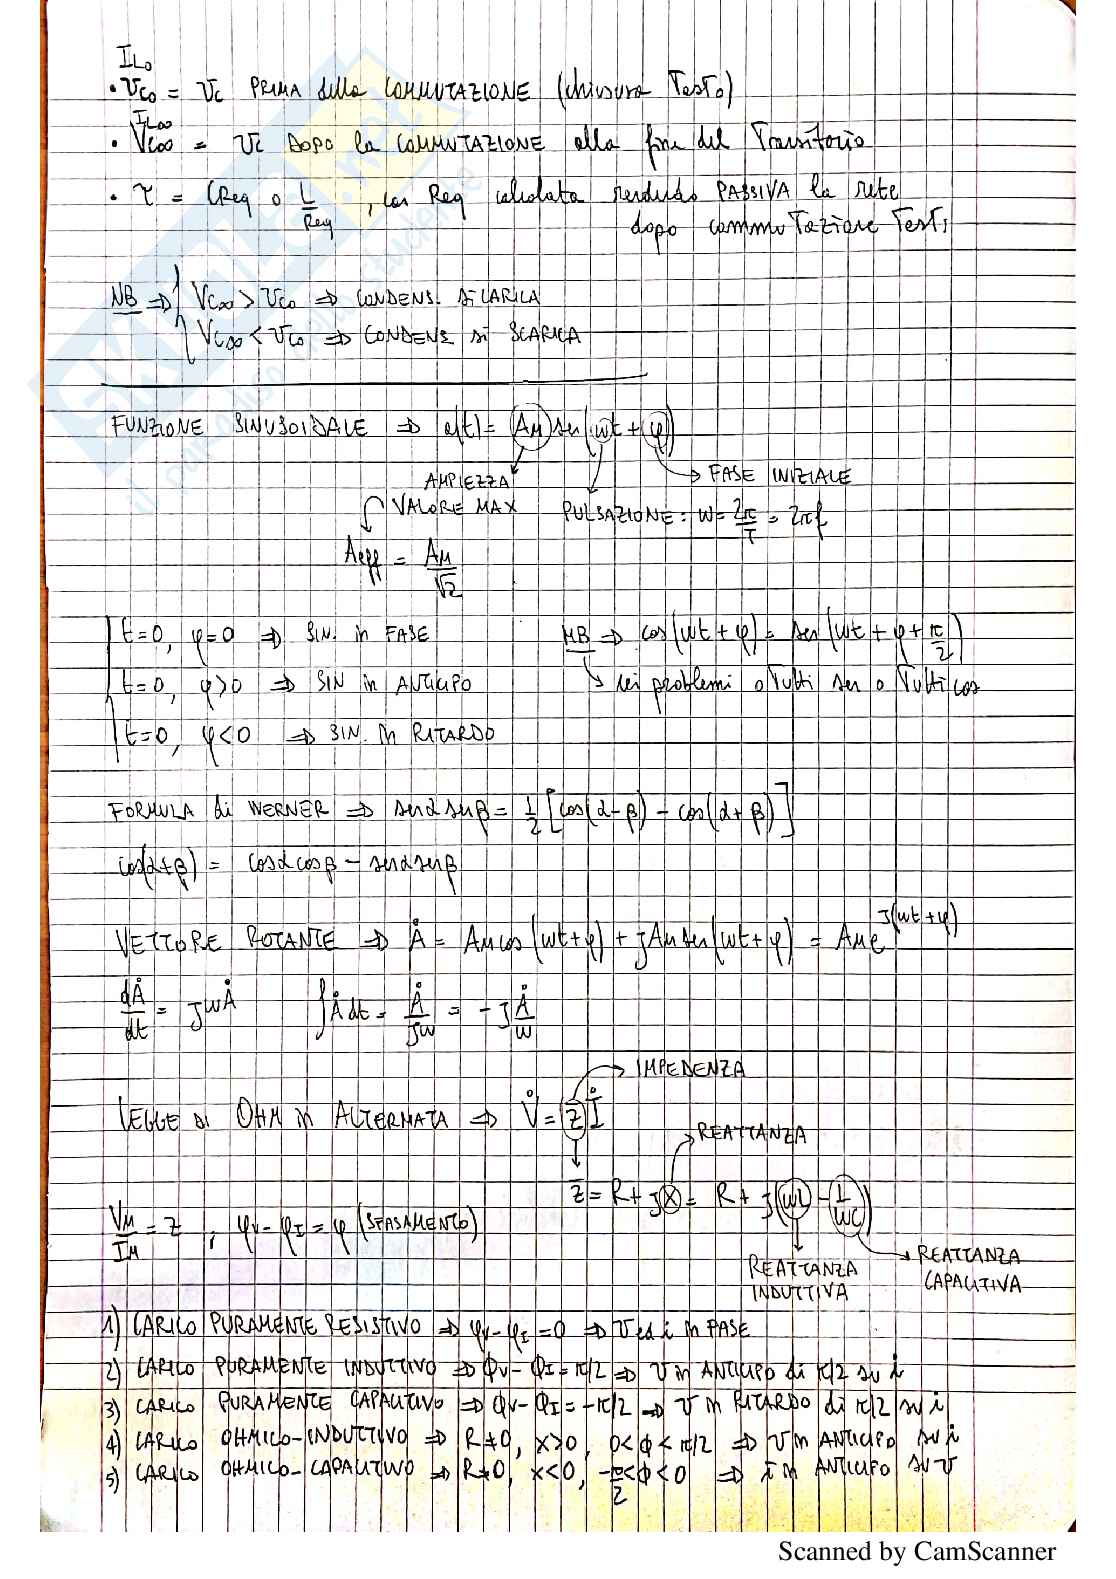 I_L0
• v_C0 = v_C PRIMA della COMMUTAZIONE (chiusura Tasto)
I_L∞
• V_C∞ = v_C DOPO la COMMUTAZIONE alla fine del Transitorio
• τ = C Req o L/Req , con Req calcolata rendendo PASSIVA la rete
dopo commutazione Tasti
NB ⇒ { V_C∞ > v_C0 ⇒ CONDENS. SI CARICA
V_C∞ < v_C0 ⇒ CONDENS SI SCARICA
FUNZIONE SINUSOIDALE ⇒ a(t) = A_M sen(ωt + φ)
AMPIEZZA
VALORE MAX
FASE INIZIALE
PULSAZIONE: ω = 2π/T = 2πf
A_eff = A_M/√2
{ t=0, φ=0 ⇒ SIN. in FASE
t=0, φ>0 ⇒ SIN in ANTICIPO
t=0, φ<0 ⇒ SIN. in RITARDO
NB ⇒ cos(ωt + φ) = sen(ωt + φ + π/2)
nei problemi o Tutti sen o Tutti cos
FORMULA di WERNER ⇒ senα senβ = 1/2 [cos(α-β) - cos(α+β)]
cos(α+β) = cosα cosβ - senα senβ
VETTORE ROTANTE ⇒ Å = A_M cos(ωt+φ) + jA_M sen(ωt+φ) = A_M e^j(ωt+φ)
dÅ/dt = jωÅ ∫Å dt = Å/jω = -j Å/ω
IMPEDENZA
LEGGE DI OHM in ALTERNATA ⇒ V̊ = Z̄ I̊
REATTANZA
Z̄ = R + jX = R + j(ωL - 1/ωC)
V_M/I_M = Z , φ_V - φ_I = φ (SFASAMENTO)
REATTANZA INDUTTIVA
REATTANZA CAPACITIVA
1) CARICO PURAMENTE RESISTIVO ⇒ φ_V - φ_I = 0 ⇒ v ed i in FASE
2) CARICO PURAMENTE INDUTTIVO ⇒ φ_V - φ_I = π/2 ⇒ v in ANTICIPO di π/2 su i
3) CARICO PURAMENTE CAPACITIVO ⇒ φ_V - φ_I = -π/2 ⇒ v in RITARDO di π/2 su i
4) CARICO OHMICO-INDUTTIVO ⇒ R≠0, X>0, 0<φ<π/2 ⇒ v in ANTICIPO su i
5) CARICO OHMICO-CAPACITIVO ⇒ R≠0, X<0, -π/2<φ<0 ⇒ i in ANTICIPO su v
Scanned by CamScanner